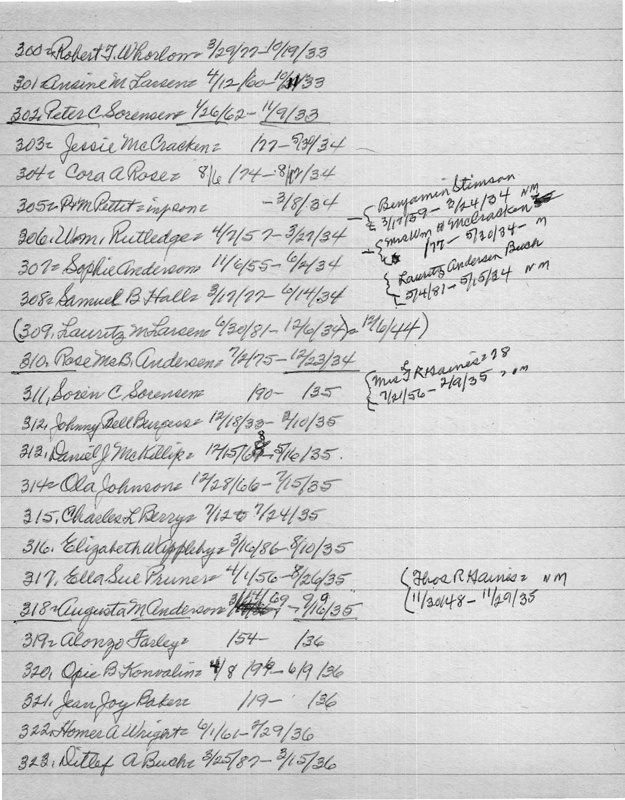 300= Robert T. Whorlow= 3/29/77-10/19/33
301= Ansine M Larsen= 4/12/60-10/ /33
302. Peter C Sorensen= 1/26/62-11/9/33
303= Jessie McCracken= /77-5/30/34
304= Cora A Rose= 8/6/74-8/ /34
305= P M Pettit= inpson= -3/8/34
306. Wm. Rutledge= 4/7/57-3/27/34
307= Sophie Anderson 11/6/55-6/2/34
308= Samuel B. Hall= 3/17/77-6/14/34
(309. Lauritz M Larsen= 6/30/81-12/6/34)= 12/6/44)
310. Rose McB. Andersen= 7/2/75-12/23/34
311, Soren C Sorensen= /90- /35
312. Johnny Dell Burgess= 12/18/33-2/10/35
313. Daniel J. McKillip= 12/15/68-5/16/35.
314= Ola Johnson= 12/28/66-7/15/35
315. Charles L Berry= 7/12 7/24/35
316. Elizabeth W Appleby= 3/16/86-8/10/35
317. Ella Sue Pruner= 4/1/56-8/26/35
318= Augusta M Anderson= 3/ /69-9/9/35
319= Alonzo Farley= /54- /36
320. Opie B Konvalin= 4/8/99-6/9/36
321. Jean Joy Baker= /19- /36
322. Homer A Wright= 6/1/61-2/29/36
323. Ditlef A Buch= 3/25/87-3/15/36
- { Benjamin Stimson
3/17/59-3/24/34 NM
- { Mrs Wm McCracken
/77-5/30/34- M
{ Lauritz Andersen Buch
5/4/81-5/15/34 NM
{ Mrs T R Haines= 78
7/21/56-2/9/35 > NM
{ Thos R Haines= NM
11/30/48-11/29/35